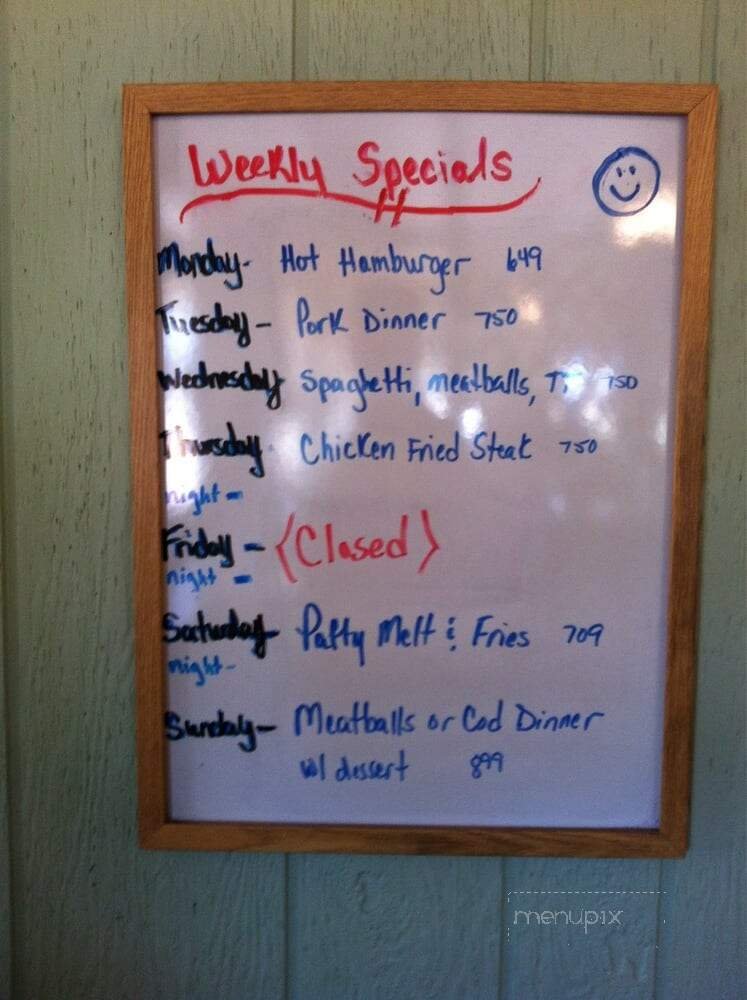 Weekly Specials
Monday- Hot Hamburger 649
Tuesday- Pork Dinner 750
Wednesday Spaghetti, meatballs, 750
Thursday Chicken Fried Steak 750
night-
Friday- {Closed}
night-
Saturday- Patty Melt & Fries 709
night-
Sunday- Meatballs or Cod Dinner
w/ dessert 899
menupix